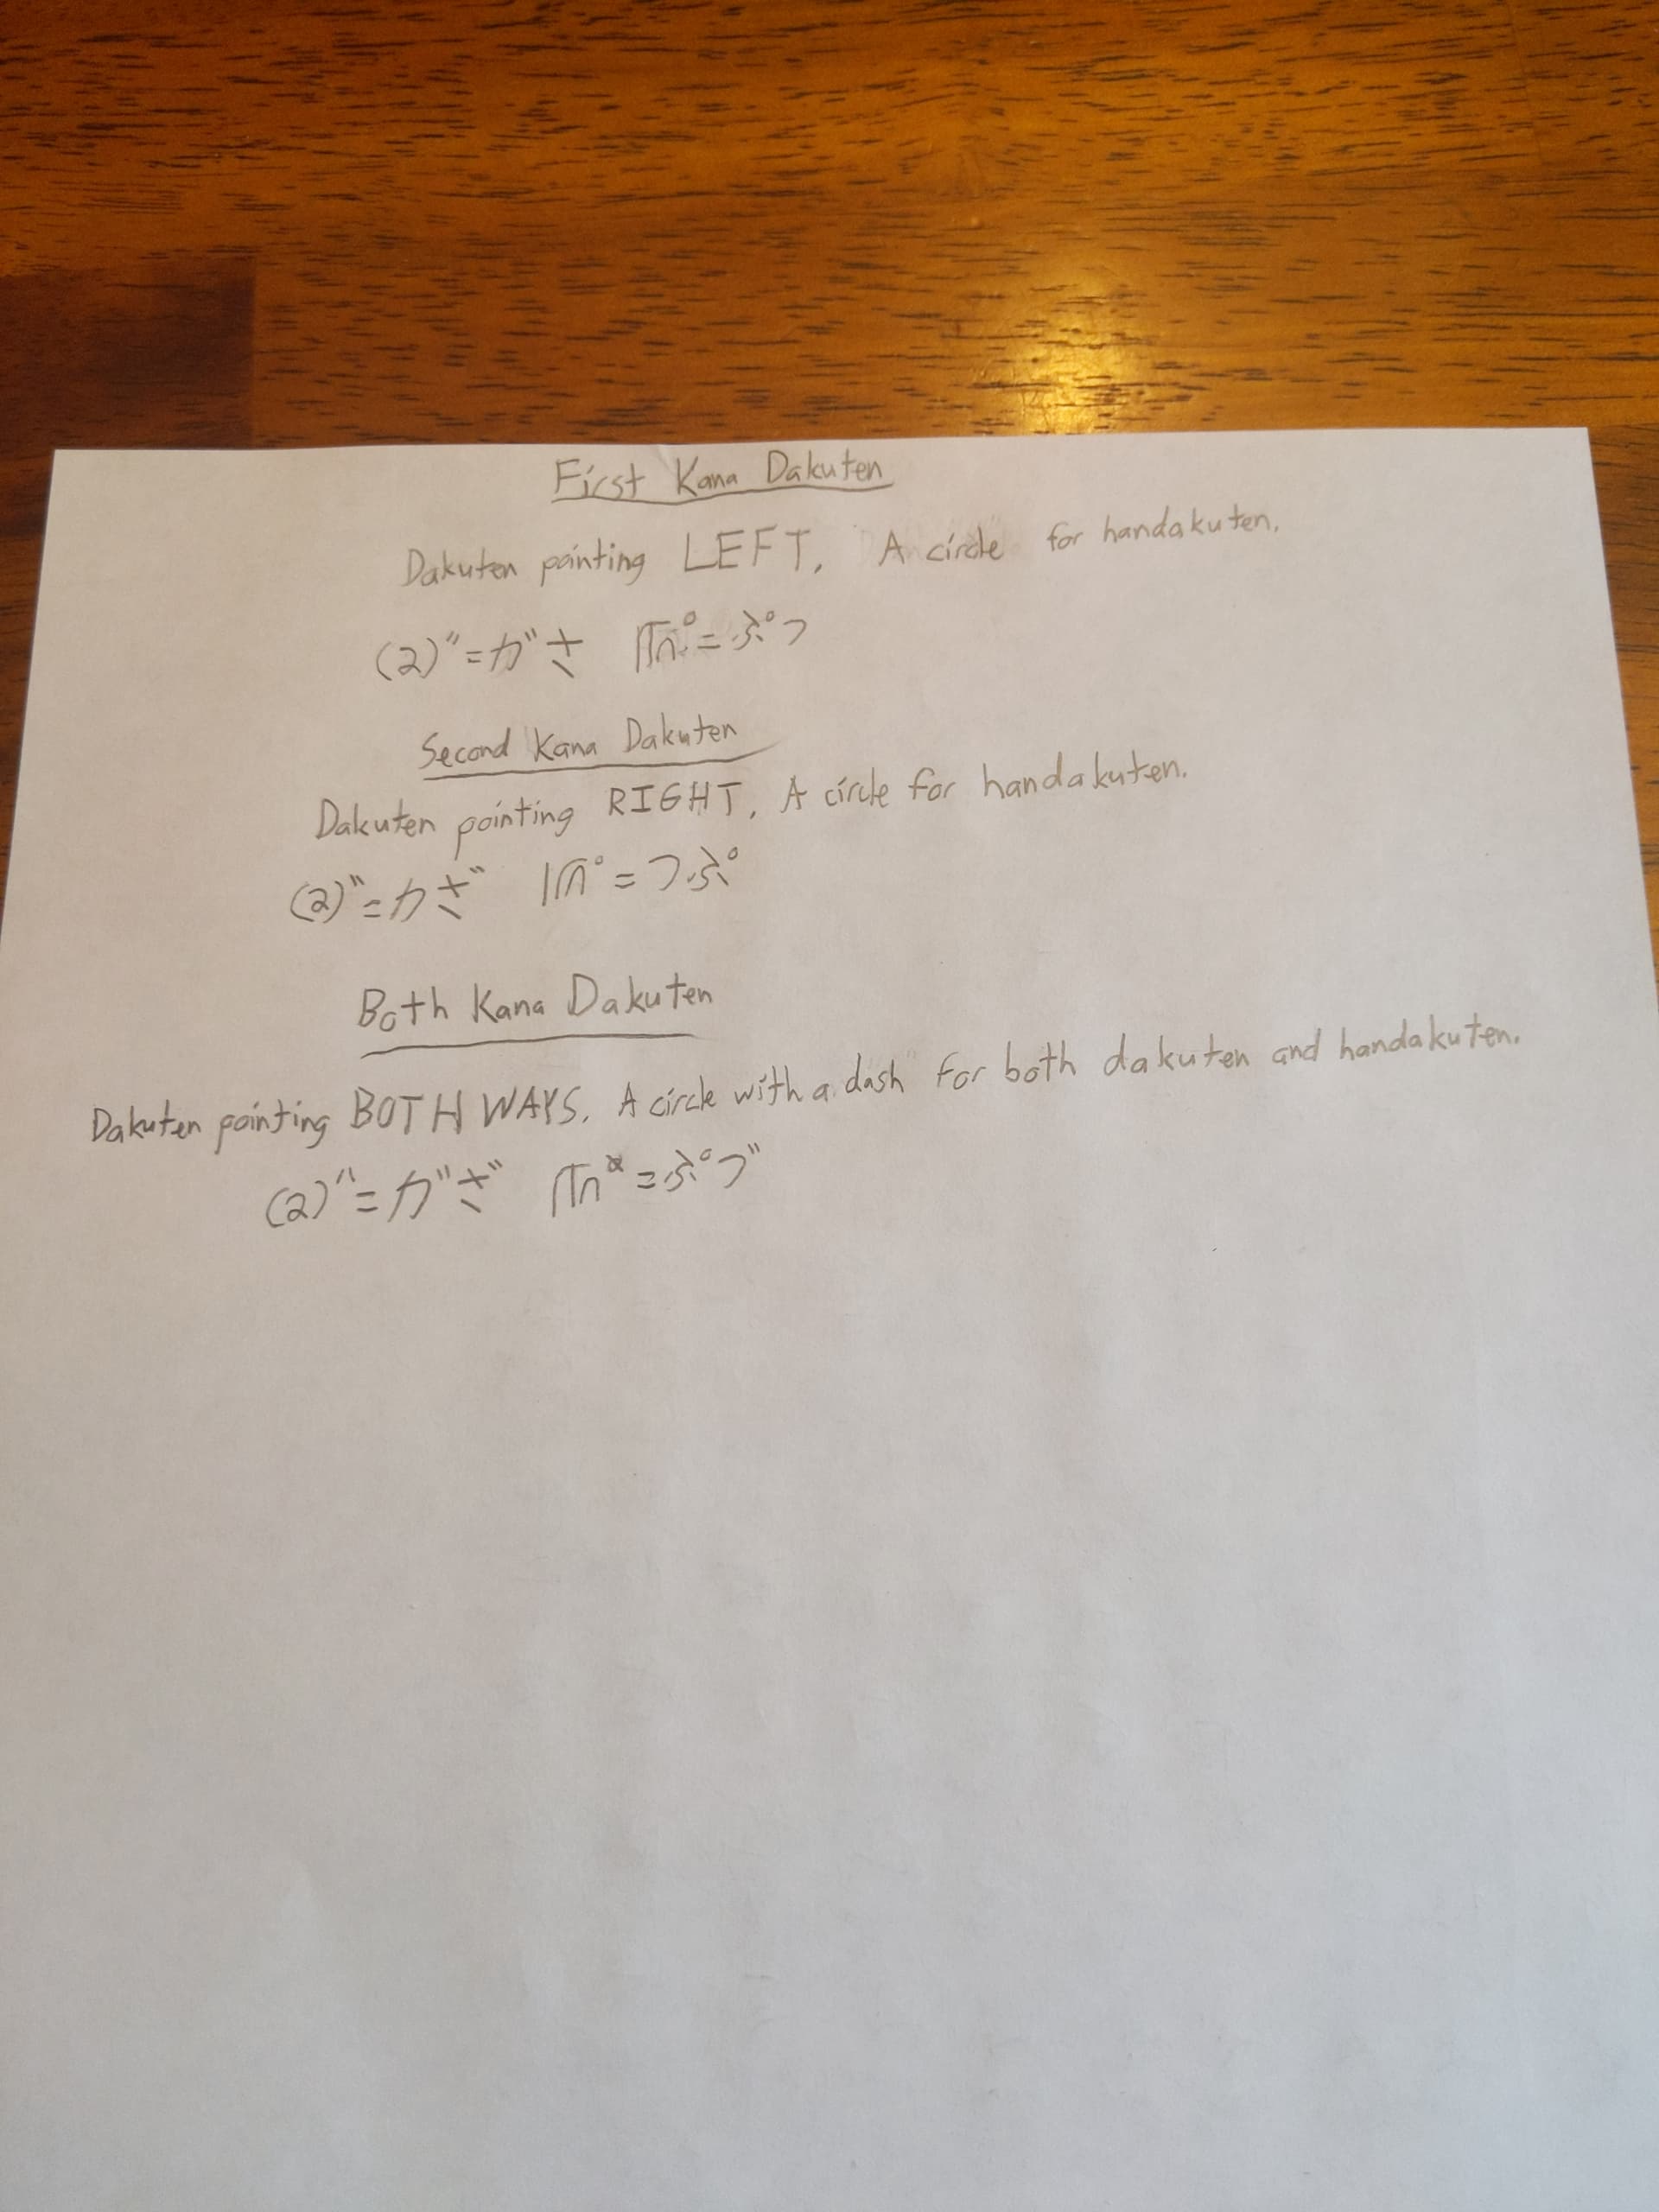 First Kana Dakuten
Dakuten pointing LEFT. A circle for handakuten.
(2)" = カ" ゙= ふ°つ
Second Kana Dakuten
Dakuten pointing RIGHT. A circle for handakuten.
(2)" = カ = つふ°
Both Kana Dakuten
Dakuten pointing BOTH WAYS. A circle with a dash for both dakuten and handakuten.
(2)" = カ" = ふ°つ"